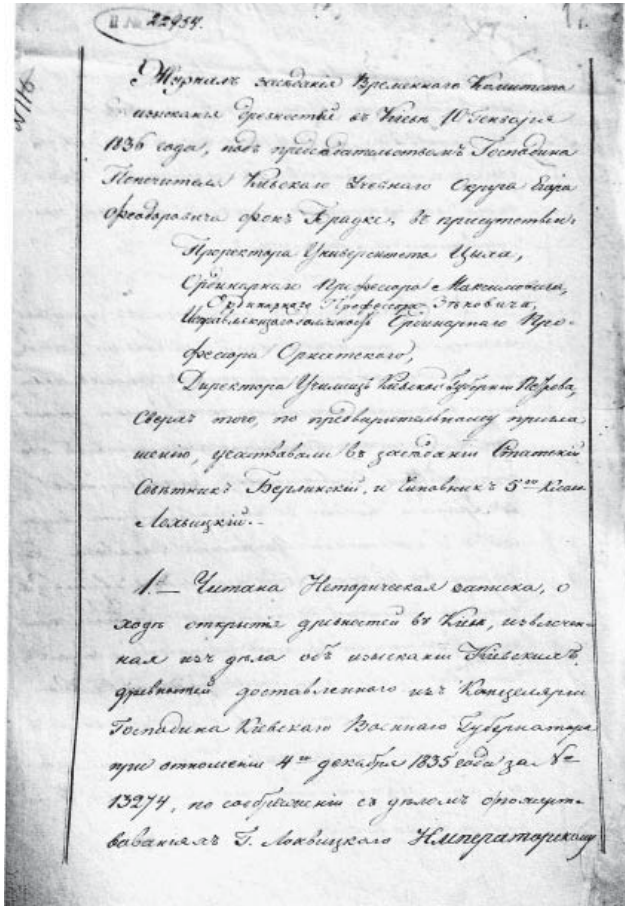 II № 22954.
Журналъ засѣданія Временнаго Комитета
изысканія древностей въ Кіевѣ 10 Генваря
1836 года, подъ предсѣдательствомъ Господина
Попечителя Кіевскаго Учебнаго Округа Егора
Феодоровича фонъ Брадке, въ присутствіи:
Проректора Университета Цыха,
Ординарнаго Профессора Максимовича,
Ординарнаго Профессора Зѣновича,
Исправляющаго должность Ординарнаго Про-
фессора Орнатскаго,
Директора Училищъ Кіевской Губерніи Петрова,
Сверхъ того, по предварительному пригла-
шенію, участвовали въ засѣданіи Статскій
Совѣтникъ Берлинскій, и Чиновникъ 5го класса
Лохвицкій.–
1е Читана Историческая записка, о
ходѣ открытія древностей въ Кіевѣ, извлечен-
ная изъ дѣла объ изысканіи Кіевскихъ
древностей доставленнаго изъ Канцеляріи
Господина Кіевскаго Военнаго Губернатора
при отношеніи 4го декабря 1835 года за №
13274, по соображеніи съ дѣломъ о пожерт-
вованіяхъ Г. Лохвицкаго Императорскому